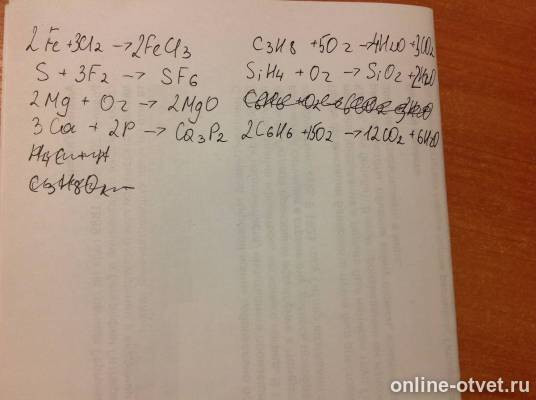 2Fe+3Cl2 →2FeCl3
S + 3F2 → SF6
2Mg + O2 → 2MgO
3Ca + 2P → Ca3P2
C3H8O
C3H8 +5O2 →4H2O+3CO2
SiH4 + O2 → SiO2 +2H2O
2C6H6 +15O2 →12CO2 +6H2O
online-otvet.ru